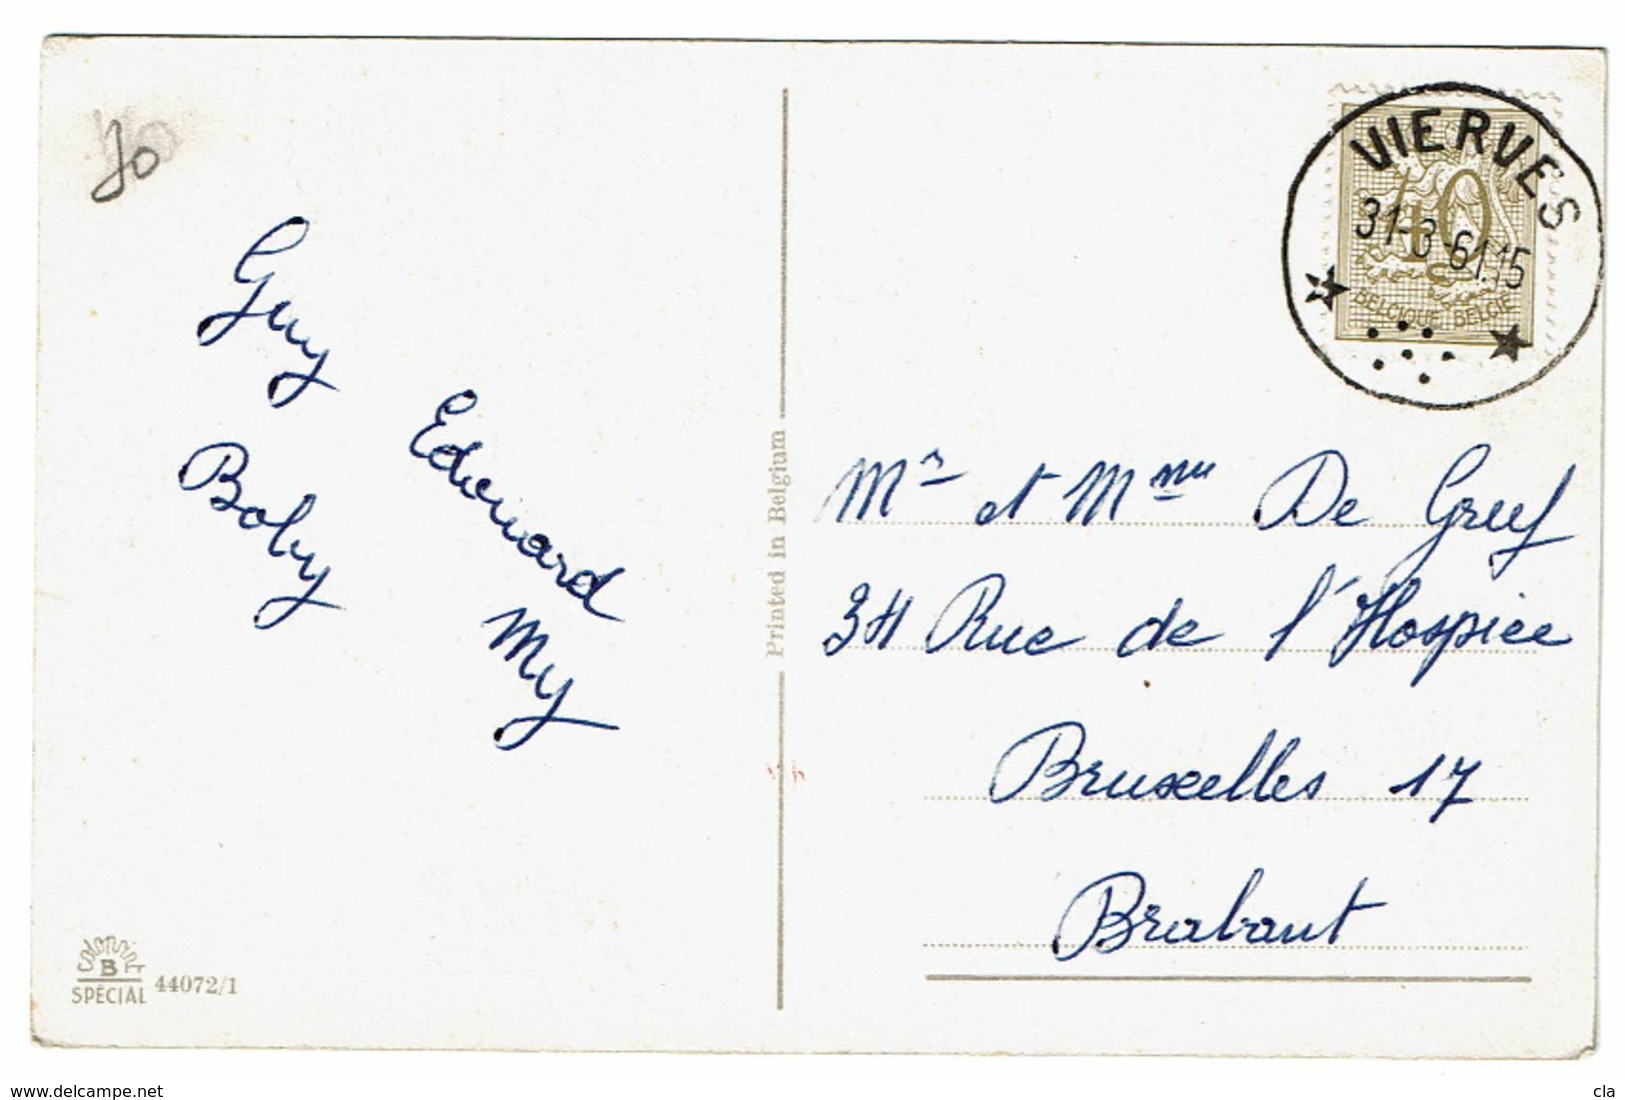 Jo
Guy
Edouard
Boby
My
VIERVES
31-3-61 15
40
BELGIQUE BELGIE
Mr et Mme De Greef
34 Rue de l'Hospice
Bruxelles 17
Brabant
Printed in Belgium
Colorprint
B
SPÉCIAL 44072/1
www.delcampe.net
cla